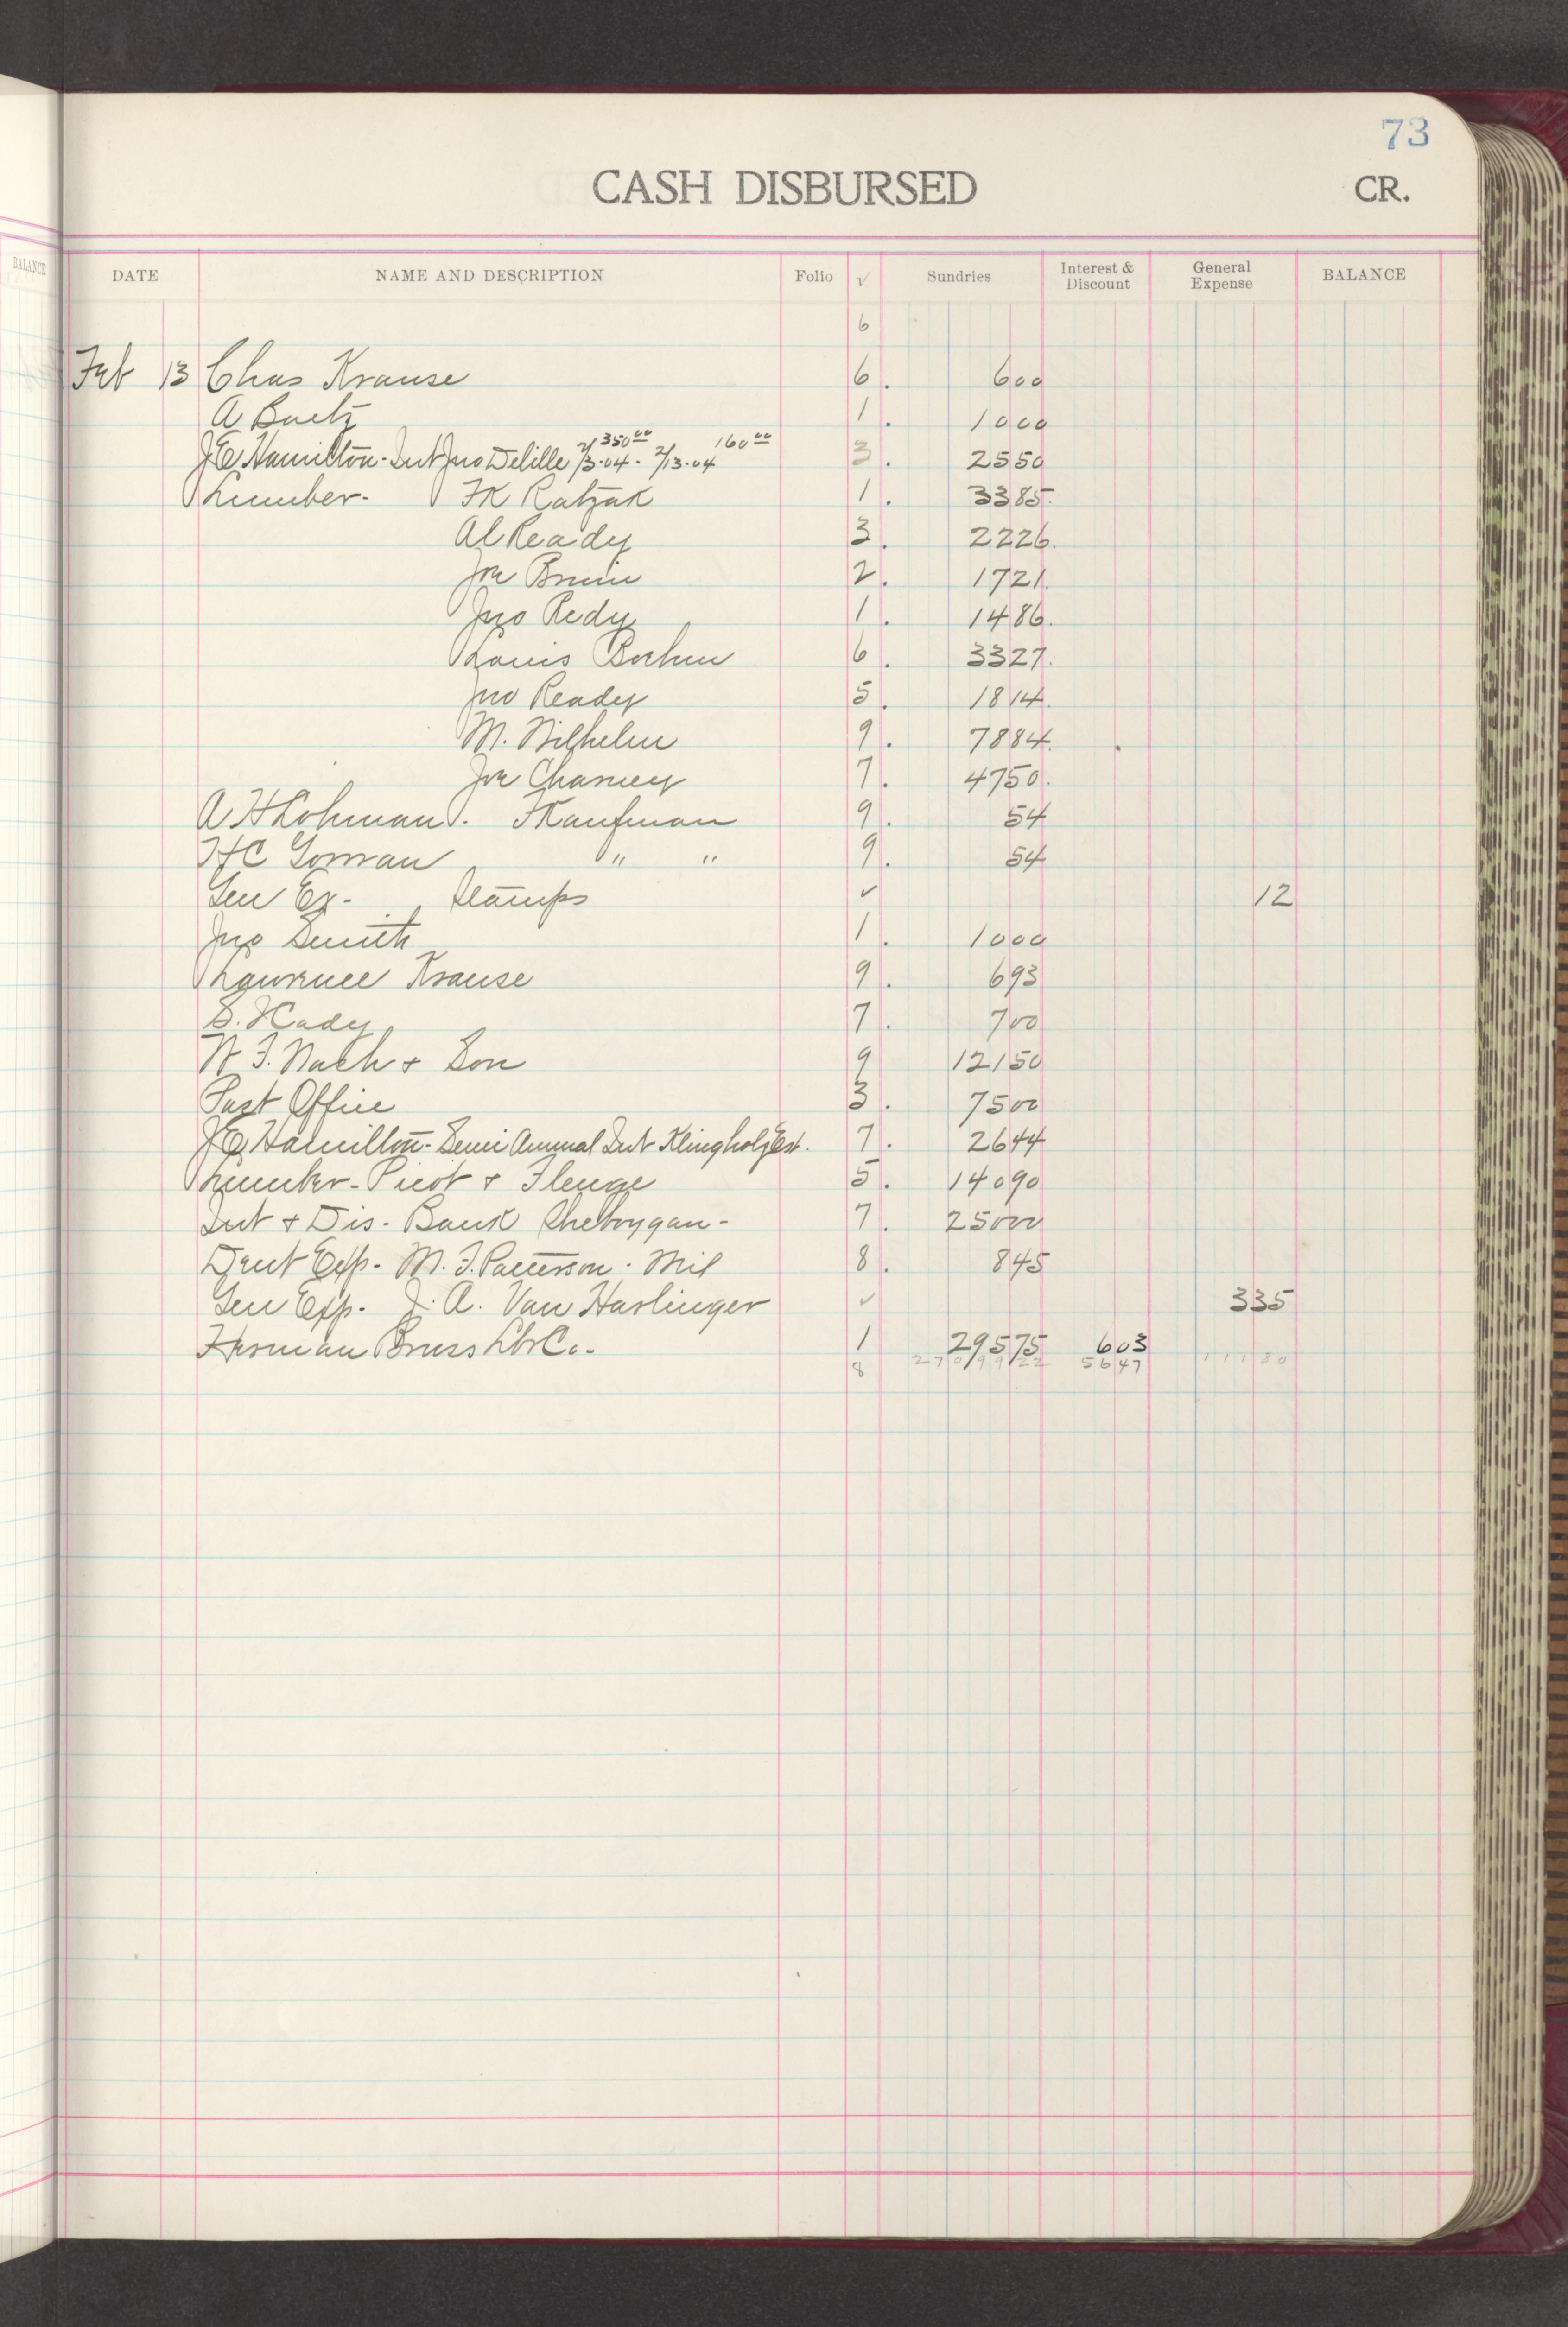 73
CASH DISBURSED CR.
BALANCE
DATE NAME AND DESCRIPTION Folio √ Sundries Interest & Discount General Expense BALANCE
6
Feb 13 Chas Krause 6. 600
A Buetz 1. 1000
J E Hamilton - Int Jno Delille 2/3-04 - 350 00 2/13-04 160 00 3. 2550
Lumber - FK Ratzak 1. 3385.
Al Ready 3. 2226.
Joe 2. 1721.
Jno Redy 1. 1486.
Louis Boehm 6. 3327.
Jno Ready 5. 1814.
M. Wilhelm 9. 7884.
Joe Charney 7. 4750.
A H Lohman. F Kaufman 9. 54
H C Gorman " " 9. 54
Gen Ex - Stamps ✓ 12
Jno Smith 1. 1000
Lawrence Krause 9. 693
S. 7. 700
W F. Nach + Son 9 12150
Post Office 3. 7500
J E Hamilton - Semi Annual Int Klingholz Est. 7. 2644
Lumber - Picot + Flenge 5. 14090
Int + Dis - Bank Sheboygan - 7. 25000
Dent Exp - M. F. Patterson - Mil 8. 845
Gen Exp - J. A. Van Harlinger ✓ 335
Herman Bruss Lbr Co - 1 29575 603
8 2709922 5647 11130